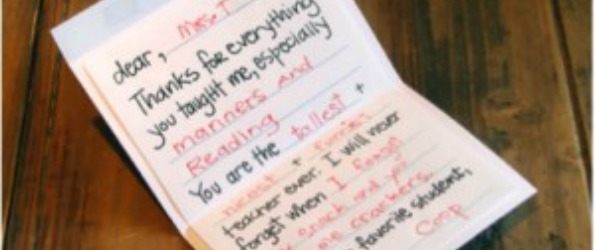 dear, Mrs. T
Thanks for everything
you taught me, especially
manners and
Reading
You are the tallest +
nicest + funniest
teacher ever. I will never
forget when I forgot
snack and you
me crackers.
favorite student,
Coop